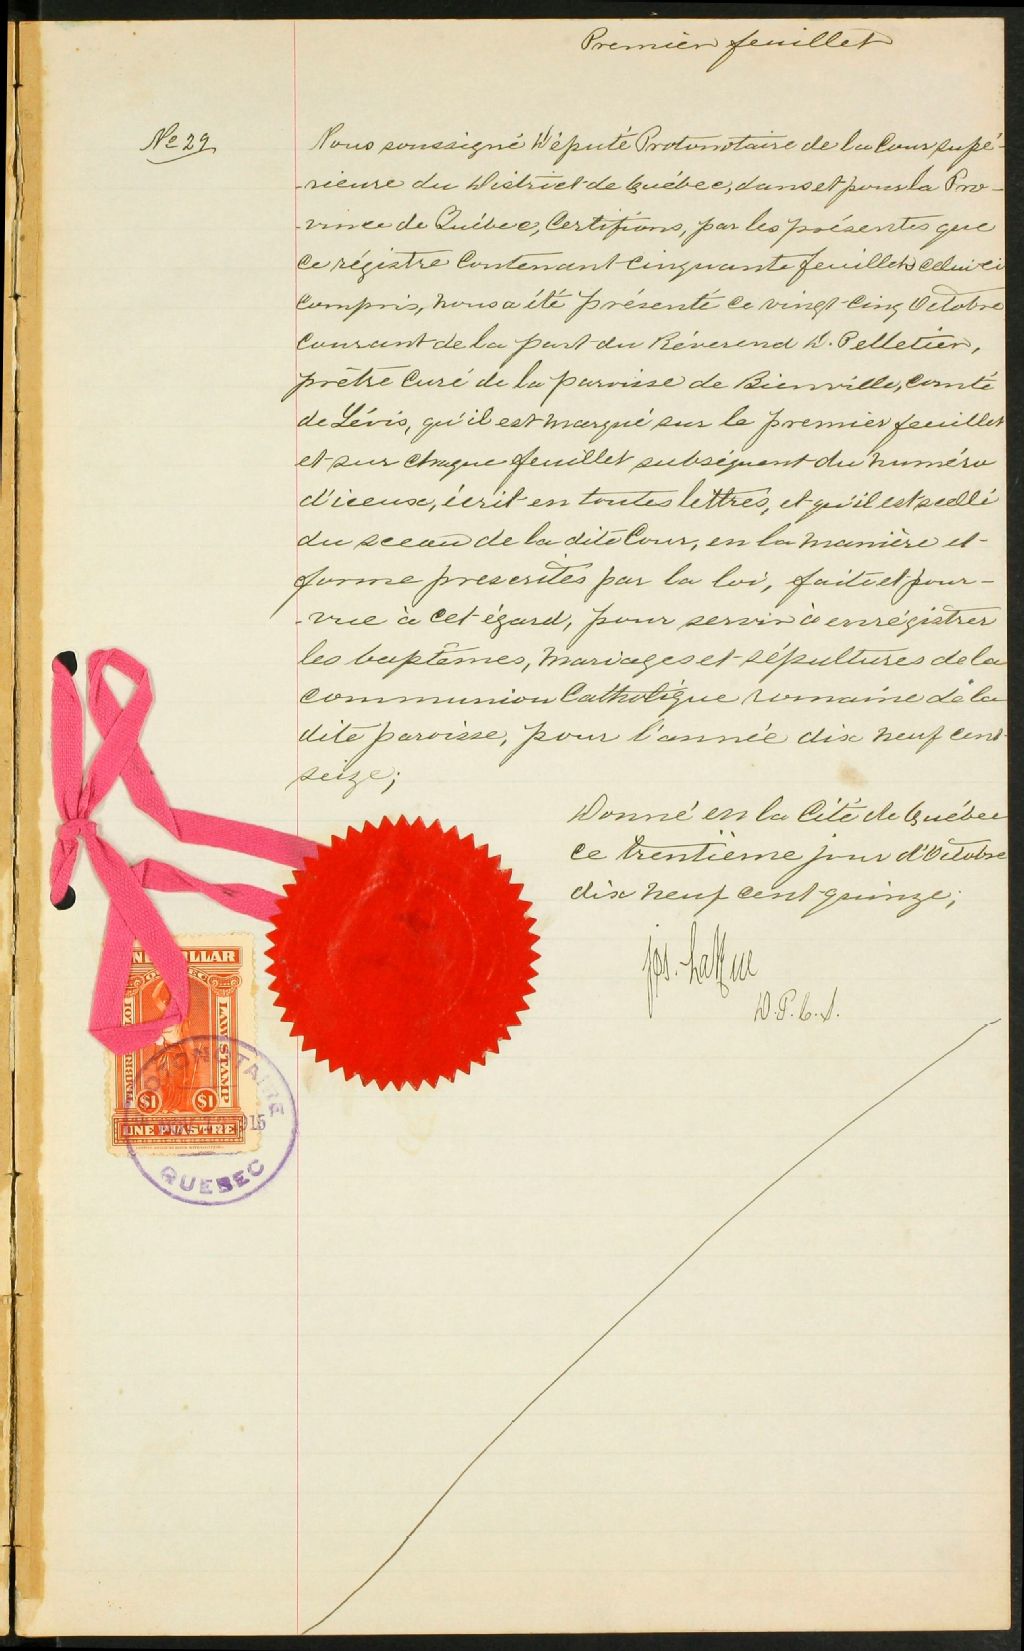 Premier feuillet
No 29
Nous soussigné Député Protonotaire de la Cour supé-
-rieure du District de Québec, dans et pour la Pro-
-vince de Québec, Certifions, par les présentes que
ce régistre Contenant Cinquante feuillets celui ci
compris, nous a été présenté ce vingt-cinq Octobre
courant de la part du Réverend D. Pelletier,
prêtre Curé de la paroisse de Bienville, comté
de Lévis, qu'il est marqué sur le premier feuillet
et sur chaque feuillet subséquent du numéro
d'iceux, écrit en toutes lettres, et qu'il est scellé
du sceau de la dite Cour, en la manière et
forme prescrites par la loi, faite et pour-
-vue à cet égard, pour servir à enrégistrer
les baptêmes, mariages et sépultures de la
communion Catholique romaine de la
dite paroisse, pour l'année dix neuf cent
seize;
Donné en la Cité de Québec
ce trentième jour d'Octobre
dix neuf cent quinze;
Jos. LaRue
D. P. C. S.
LLAR
TIMBRE
LAW STAMP
$1 $1
UNE PIASTRE
915
QUEBEC